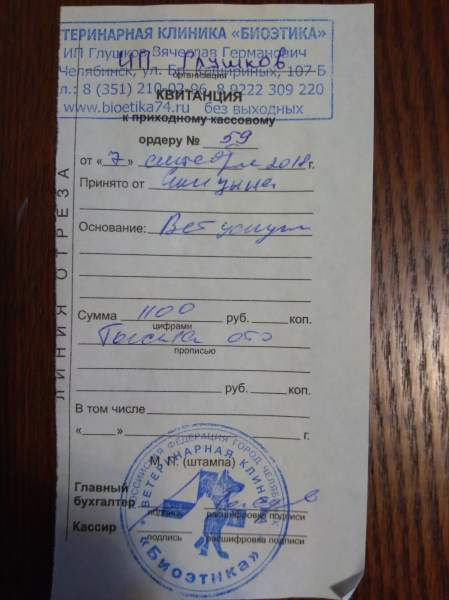 ВЕТЕРИНАРНАЯ КЛИНИКА «БИОЭТИКА»
ИП Глушков Вячеслав Германович
Челябинск, ул. Бр. Кашириных, 107 Б
8 (351) 210-02-96, 8 9222 309 220
www.bioetika74.ru без выходных
ИП Глушков
организация
КВИТАНЦИЯ
к приходному кассовому
ордеру № 59
от «7» сентября 2018 г.
Принято от
Основание: Вет услуги
Сумма 1100 руб. коп.
цифрами
Тысяча сто
прописью
руб. коп.
В том числе
« » г.
М. П. (штампа)
Главный
бухгалтер
подпись расшифровка подписи
Кассир
подпись расшифровка подписи
ЛИНИЯ ОТРЕЗА
РОССИЙСКАЯ ФЕДЕРАЦИЯ ГОРОД ЧЕЛЯБИНСК
ВЕТЕРИНАРНАЯ КЛИНИКА
«Биоэтика»